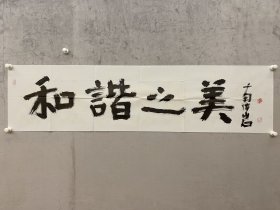 和諧之美